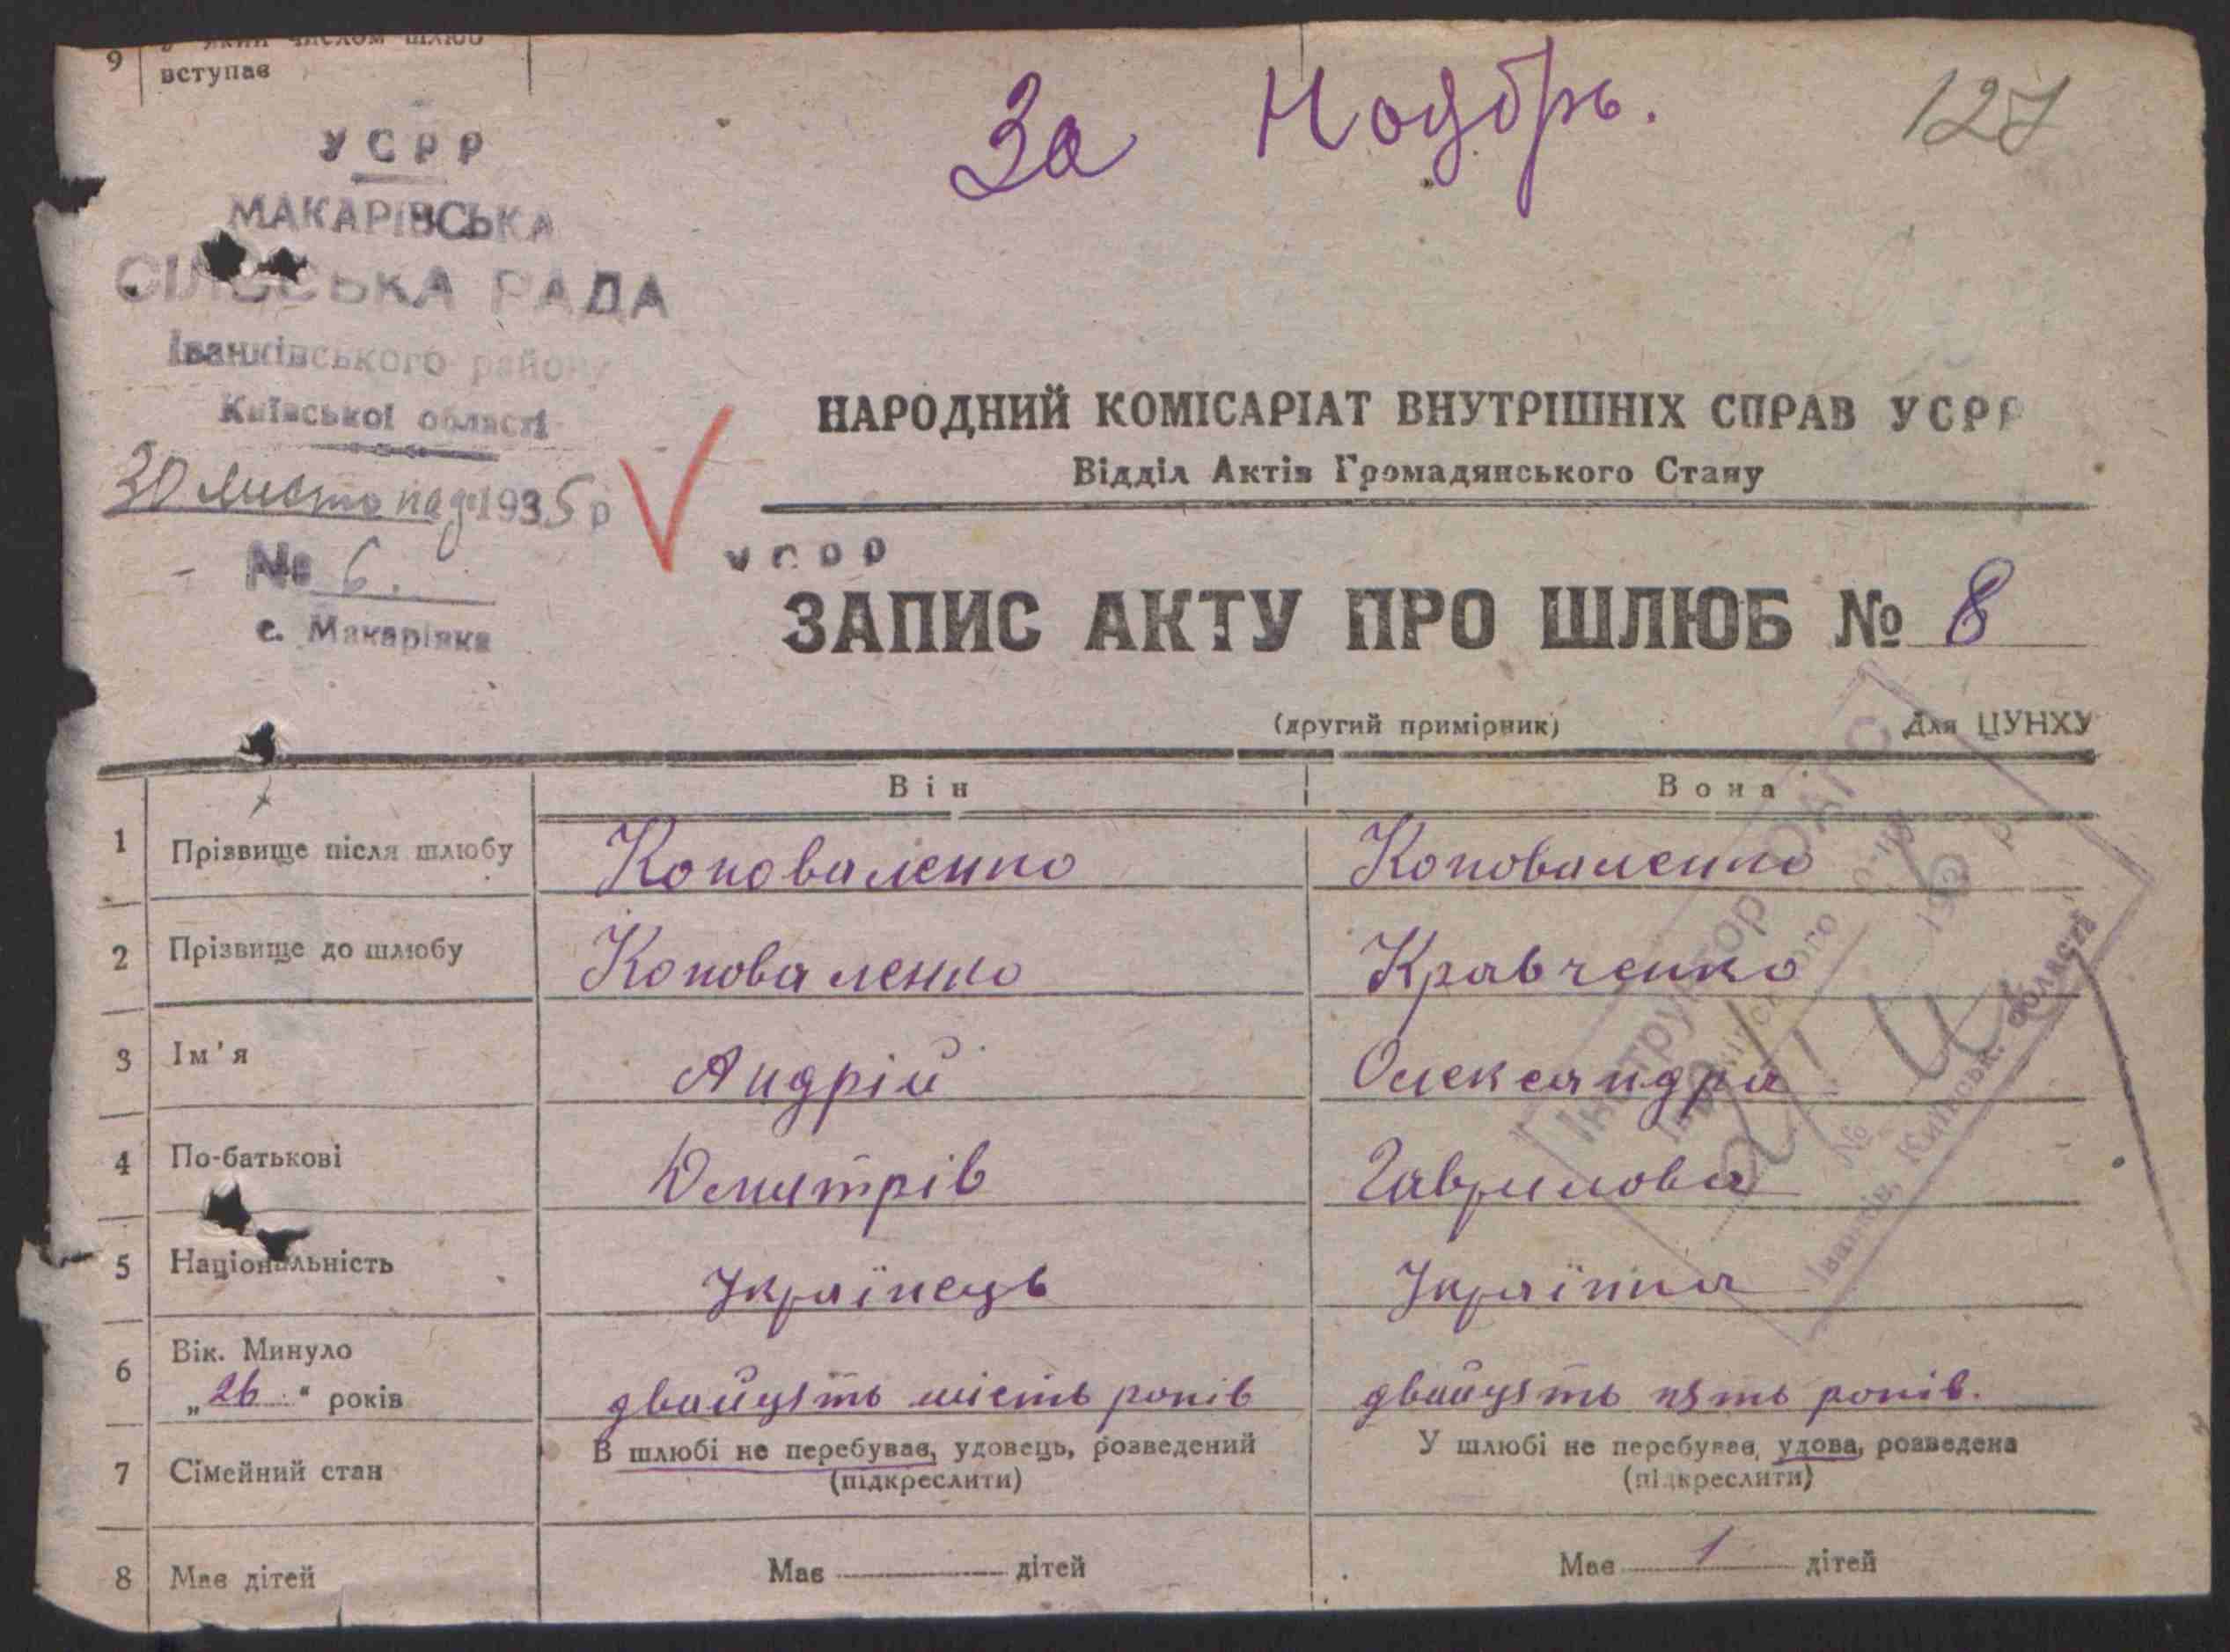 9 У який числом шлюб
вступав
За Ноябрь.
127
УСРР
МАКАРІВСЬКА
СІЛЬСЬКА РАДА
Іванківського району
Київської області
30 листопад 1935 р
№ 6.
с. Макарівка
НАРОДНИЙ КОМІСАРІАТ ВНУТРІШНІХ СПРАВ УСРР
Відділ Актів Громадянського Стану
УСРР
ЗАПИС АКТУ ПРО ШЛЮБ № 8
(другий примірник) Для ЦУНХУ
Він Вона
1 Прізвище після шлюбу Коноваленко Коноваленко
2 Прізвище до шлюбу Коноваленко Кравченко
3 Ім'я Андрій Олександра
4 По-батькові Дмитрів Гаврилова
5 Національність Українець Українка
6 Вік. Минуло
„26" років двайцять шість років двайцять пять років.
7 Сімейний стан В шлюбі не перебував, удовець, розведений У шлюбі не перебував, удова, розведена
(підкреслити) (підкреслити)
8 Має дітей Має — дітей Має 1 дітей
Інструктор ОАГС
Іванківського р-ну
193 р
№
Іванків, Київськ. області